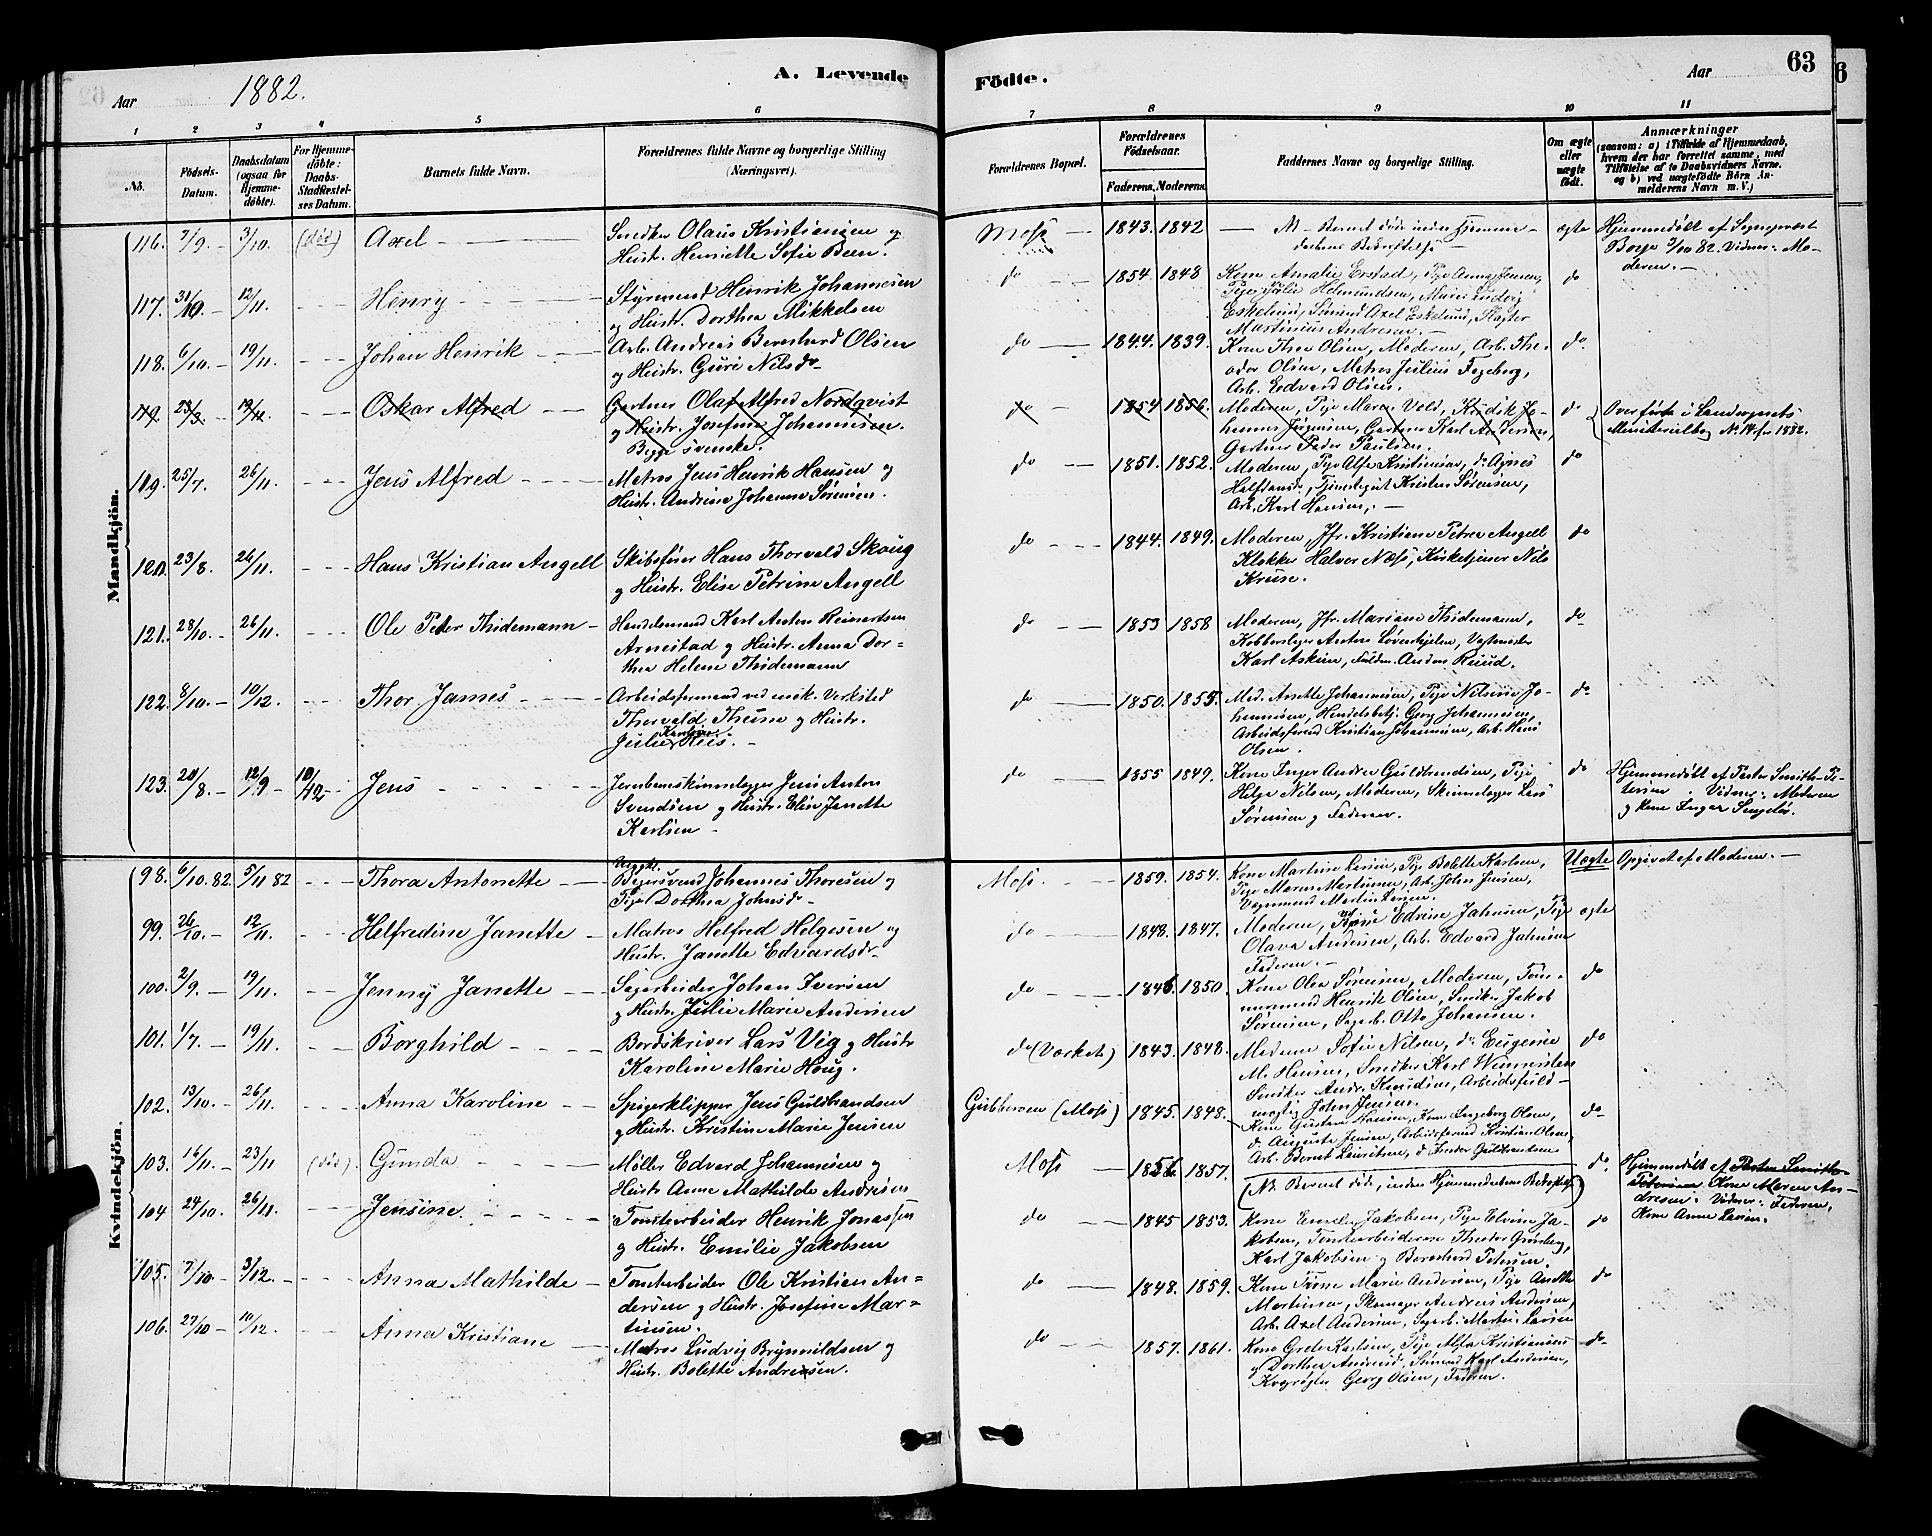 Aar 1882. A. Levende Födte. Aar 63
1 2 3 4 5 6 7 8 9 10 11
No. Födsels-Datum. Daabsdatum (ogsaa for Hjemmedöbte). For Hjemmedöbte: Daabs-Stadfæstelses Datum. Barnets fulde Navn. Forældrenes fulde Navne og borgerlige Stilling (Næringsvei). Forældrenes Bopæl. Forældrenes Födselsaar. Faderens. Moderens. Faddernes Navne og borgerlige Stilling. Om ægte eller uægte födt. Anmærkninger (saasom: a) i Tilfælde af Hjemmedaab, hvem der har forrettet samme, med Tilföielse af to Daabsvidners Navne, og b) ved uægtefödte Börn Anmelderens Navn m. V.)
Mandkjön.
116. 7/9. 3/10. (död) Axel Snedker Olaus Kristiansen og
Hustr. Henriette Sofie Been.
Moss 1843. 1842 Barnet döde inden Hjemmedaabens Bekræftelse ægte Hjemmedöbt af Sogneprest
Borge 3/10 82. Vidner: Moderen.
117. 31/10. 12/11. Henry Styrmand Henrik Johannesen
og Hustr. Dorthea Mikkelsen
do 1854. 1848 Kone Amalie Erstad, Pige Anna Jensen,
Pige Julie Helmundsen, Murer Ludvig
Eskelund, Sömand Axel Eskelund, Slagter
Martinius Andresen. do
118. 6/10. 19/11. Johan Henrik Arb. Andreas Bernhard Olsen
og Hustr. Guri Nilsdr.
do 1844. 1839. Kone Thea Olsen, Moderen, Arb. Theodor Olsen, Matros Julius Fegeberg,
Arb. Edvard Olsen. do
119. 23/3. 19/11. Oskar Alfred Gartner Olaf Alfred Nordqvist
og Hustr. Josefine Johannesen.
Begge svenske.
do 1854 1856. Moderen, Pige Maren Vold, Kudsk Johannes Jörgensen, Gartner Karl Andersen,
Gartner Peder Paulsen. do Overfört i Landsognets
Ministerialbog No. 14 for 1882.
119. 25/7. 26/11. Jens Alfred Matros Jens Henrik Hansen og
Hustr. Andrine Johanne Sörensen.
do 1851. 1852. Moderen, Pige Alfa Kristiansen, do Agnes
Halfdansdr., Tjenestegut Kristen Sörensen,
Arb. Karl Hansen. do
120. 23/8. 26/11. Hans Kristian Angell Skibsförer Hans Thorvald Skoug
og Hustr. Elise Petrine Angell
do 1844. 1849. Moderen, Jfr. Kristiane Petrea Angell
Klokker Halvor Næss, Kirketjener Nils
Kruse. do
121. 28/10. 26/11. Ole Peter Thidemann Handelsmand Karl Anton Reinertsen
Arnestad og Hustr. Anna Dorthea Helene Thidemann
do 1853 1858 Moderen, Jfr. Mariane Thidemann,
Kobberslager Anton Lövenhjelm, Vagtmester
Karl Askim, Anders Ruud. do
122. 8/10. 10/12. Thor James Arbeidsformand ved mek. Verksted
Thorvald Theine og Hustr.
Julie Karoline Riis.
do 1850. 1855. Mad. Anette Johannesen, Pige Nilsine Johannesen, Handelsbetj. Georg Johannesen,
Arbeidsformd Kristian Johannesen, Arb. Hans
Olsen. do
123. 20/8. 12/9 10/12 Jens Jernbaneskinnelægger Jens Anton
Svendsen og Hustr. Elise Janette
Karlsen
do 1855 1849. Kone Inger Andrea Guldbrandsen, Pige
Helga Nilsen, Moderen, Skinnelægger Lars
Sörensen og Faderen. do Hjemmedöbt af Pastor Smith-Petersen. Vidner: Moderen
og Kone Inger
Kvindekjön.
98. 6/10.82. 5/11 82 Thora Antonette Ungkl.
Bagersvend Johannes Thoresen og
Pige Dorthea Johnsdr.
Moss. 1859. 1854. Kone Martine Larsen, Pige Bolette Karlsen,
Pige Maren Martinsen, Arb. John Jensen,
Vognmand Martin Larsen. Uægte Opgivet af Moderen.
99. 26/10. 12/11. Helfredine Janette Matros Helfred Helgesen og
Hustr. Janette Edvardsdr.
do 1848. 1847. Moderen, Pige Edvine Jahnsen, Pige
Olava Andersen, Arb. Edvard Jahnsen
Faderen. ægte
100. 2/9. 19/11. Jenny Janette Sagarbeider Johan Iversen
og Hustr. Julie Marie Andersen
do 1846. 1850. Kone Olea Sörensen, Moderen, Tömmermand Henrik Olsen, Snedker Jakob
Sörensen, Sagarb. Otto Johansen. do
101. 1/7. 19/11. Borghild Bordskriver Lars Vig og Hustr
Karoline Marie Houg.
do (Værket) 1843. 1848. Moderen Sofie Nilsen, do Eugenie
M. Hansen, Snedker Karl Wennersten
Snedker Andr. Knudsen, Arbeidsfuldmægtig John Jensen. do
102. 13/10. 26/11. Anna Karoline Spigerklipper Jens Guldbrandsen
og Hustr. Kristine Marie Jensen
Gubberoen (Moss) 1845. 1848. Kone Gustava Hansen, Kone Ingeborg Olsen,
do Auguste Jensen, Arbeidsformd Kristian Olsen,
Arb. Bernt Lauritsen, do Teodor Guldbrandsen do
103. 16/11. 23/11 (död). Gunda Möller Edvard Johannesen og
Hustr Anne Mathilde Andresen
Moss 1856. 1857. (NB. Barnet döde, inden Hjemmedaabens Bekræftelse) do. Hjemmedöbt af Pastor Smith-
Petersen Kone Maren Andresen. Vidner: Faderen,
Kone Anne Larsen.
104 24/10. 26/11. Jensine Tomtearbeider Henrik Jonassen
og Hustr. Emilie Jakobsen
do 1845 1853. Kone Emelie Jakobsen, Pige Elvine Jakobsen, Tomtearbeiderne Theodor Grönberg,
Karl Jakobsen og Bernhard Petersen. do
105. 7/10 3/12. Anna Mathilde Tomtearbeider Ole Kristian Andersen og Hustr. Josefine Martinsen.
do 1848. 1859. Kone Trine Marie Andersen, Pige Anette
Martinsen, Skomager Andreas Andersen,
Arb. Axel Andersen, Sagarb. Martin Larsen do
106. 27/10 10/12. Anna Kristiane Matros Ludvig Brynnildsen og
Hustr. Bolette Andreassen.
do 1857. 1861. Kone Grete Karlsen, Pige Alfa Kristiansen
og Dorthea Amundsdr, Sömand Karl Andersen,
Georg Olsen, Faderen. do